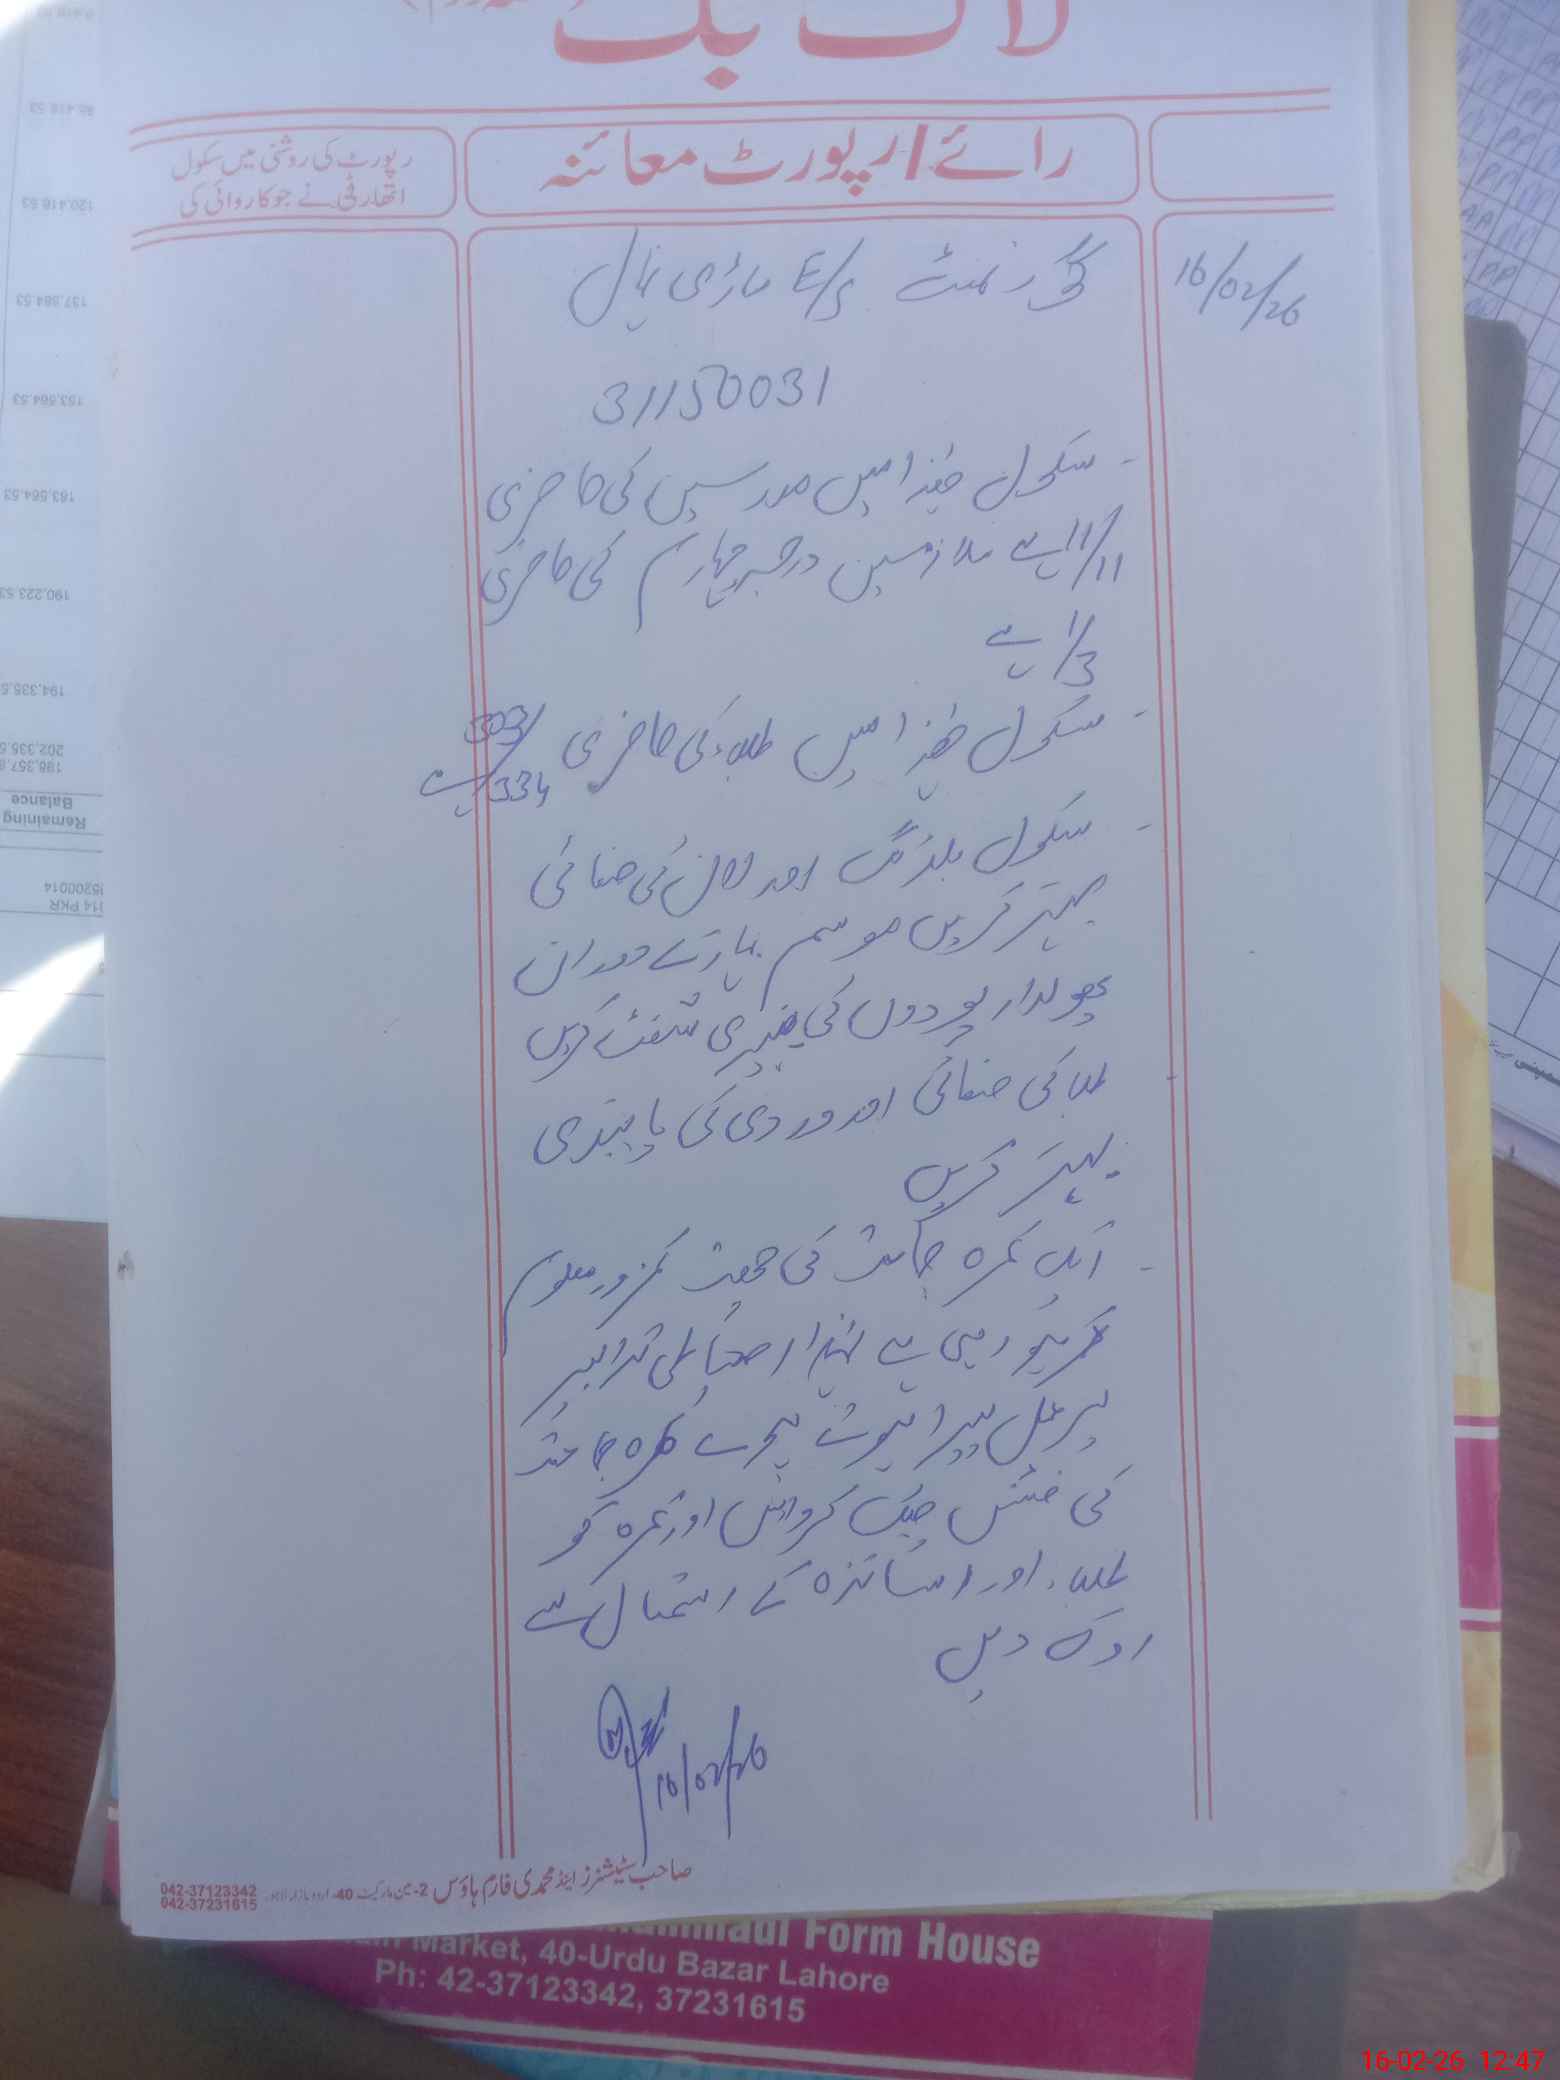 لاگ بک
رائے/رپورٹ معائنہ
رپورٹ کی روشنی میں سکول
اتھارٹی نے جو کاروائی کی
16/02/26
گورنمنٹ E/S ماڑی
31150031
- سکول ھٰذا میں مدرسین کی حاضری
11/11 ہے ملازمین درجہ چہارم کی حاضری
1/3 ہے
- سکول ھٰذا میں طلباء کی حاضری 303/334 ہے
- سکول بلڈنگ اور لان کی صفائی
بہتر کریں موسم بہار کے دوران
پھولدار پودوں کی پنیری شفٹ کریں
- طلبا کی صفائی اور وردی کی پابندی
بہتر کریں
- ایک کمرہ جماعت کی چھت کمزور معلوم
ہو رہی ہے لہٰذا احتیاطی تدابیر
پر عمل پیرا ہوتے ہوئے کمرہ جماعت
کی فٹنس چیک کروائیں اور کمرہ کو
طلباء اور اساتذہ کے استعمال سے
روک دیں
16/02/26
صاحب سٹیشنرز اینڈ محمدی فارم ہاؤس 2-مین مارکیٹ 40-اردو بازار لاہور
042-37123342
042-37231615
Form House
Market, 40-Urdu Bazar Lahore
Ph: 42-37123342, 37231615
85,418.53
120,418.53
137,984.53
153,564.53
163,564.53
190,223.53
194,335.5
202,335.5
198,357.8
Balance
Remaining
95200014
114 PKR
16-02-26 12:47